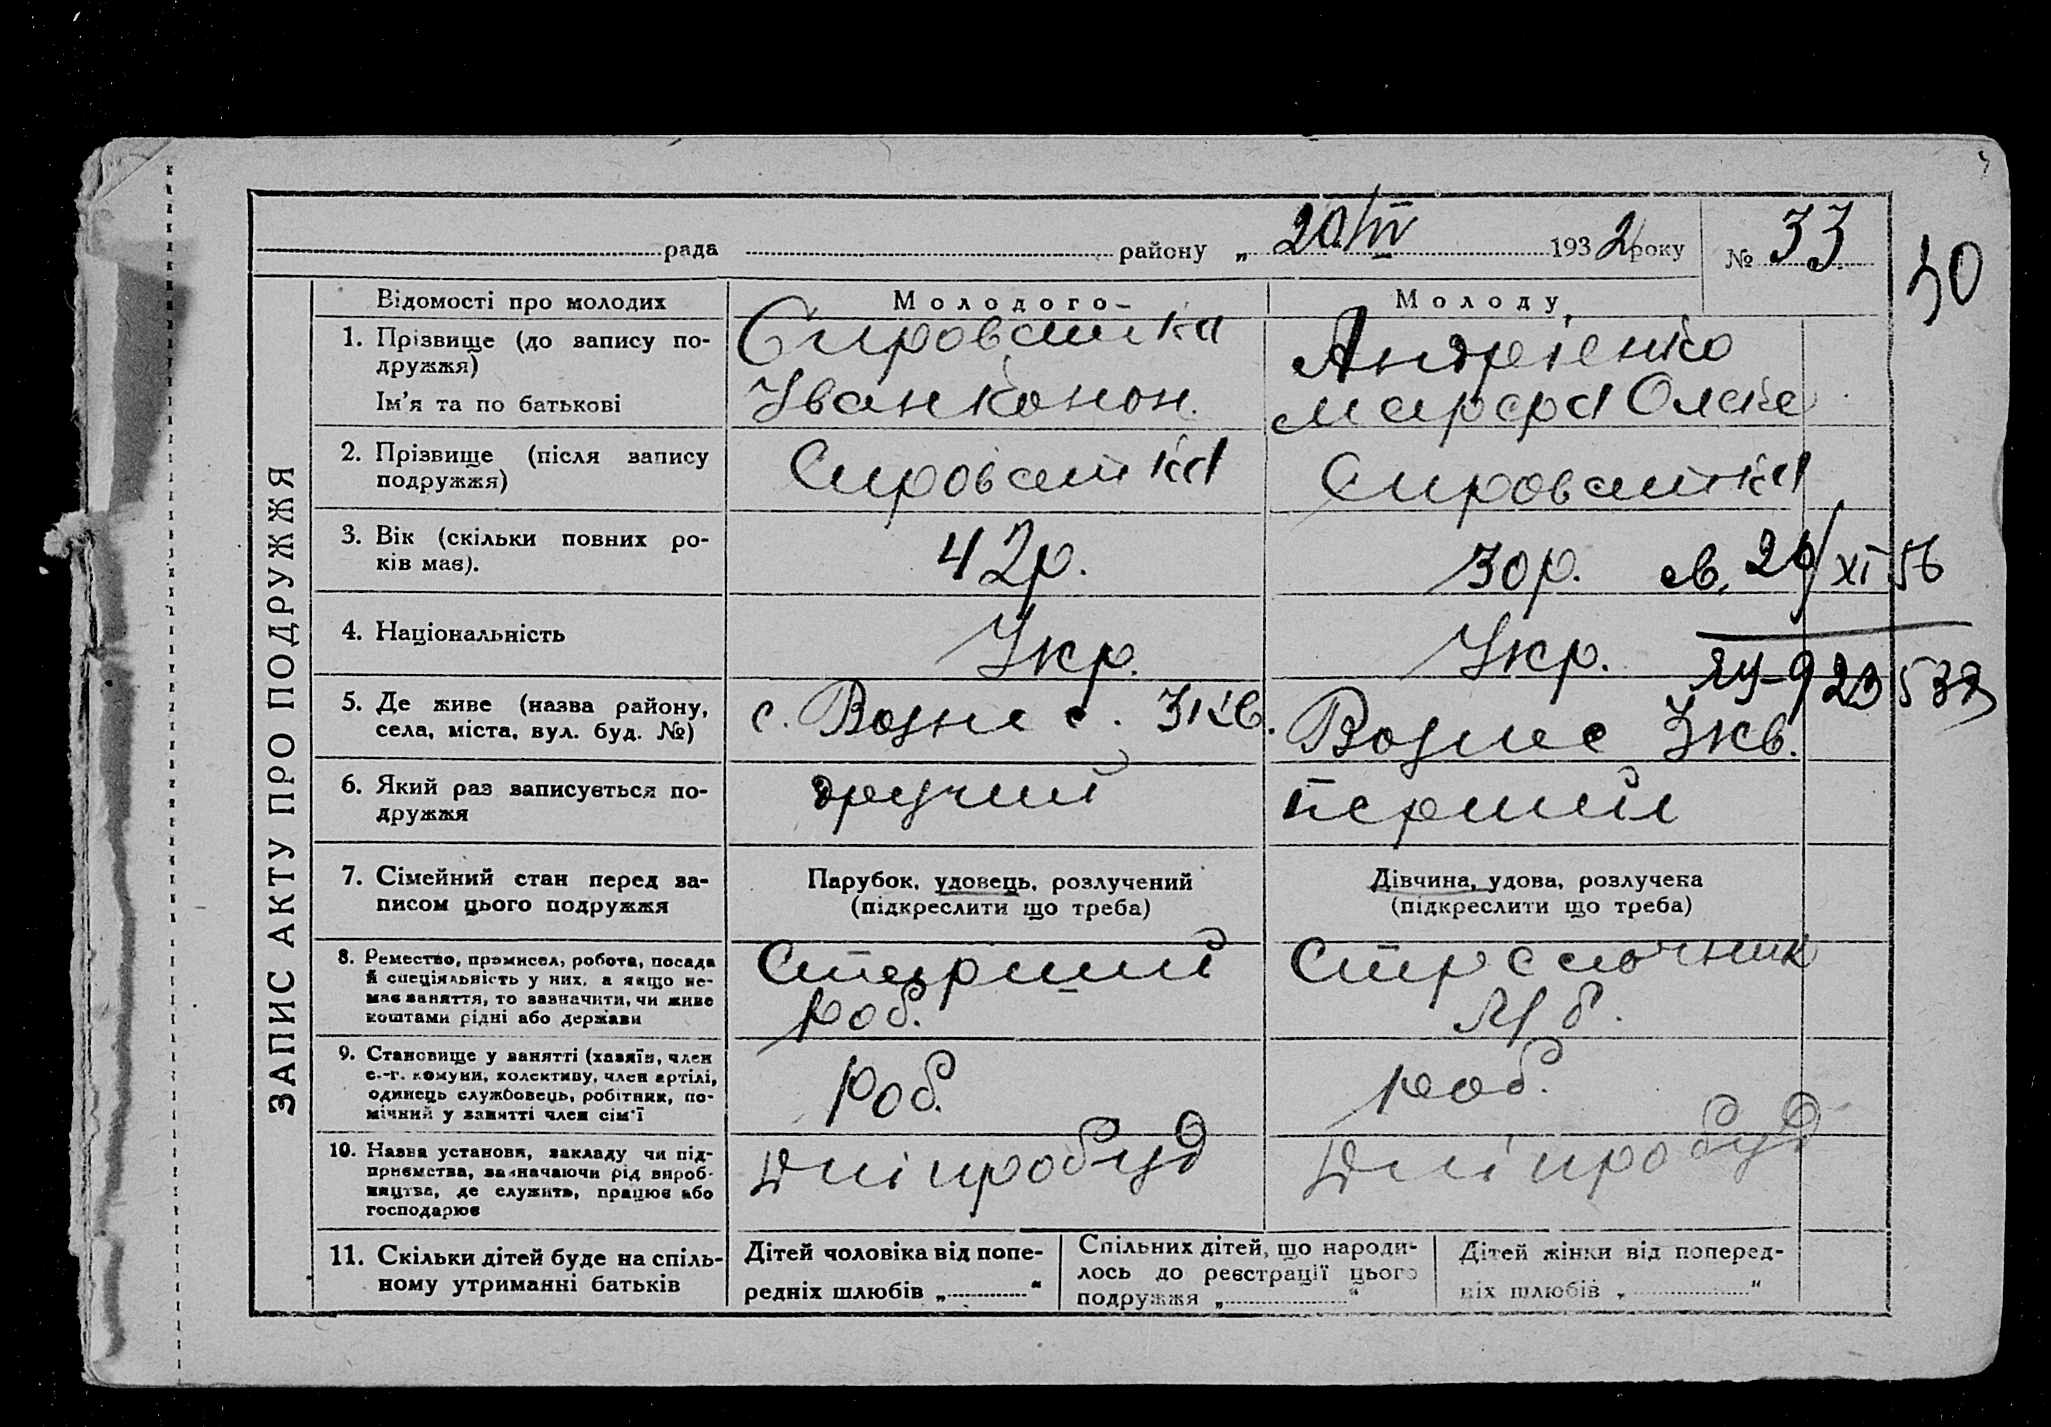 рада району „ 20/IV 1932 року № 33
50
ЗАПИС АКТУ ПРО ПОДРУЖЖЯ
Відомості про молодих Молодого Молоду
1. Прізвище (до запису по- Сироватка Андрієнко
дружжя)
Ім'я та по батькові Іван Конон. Марфа Олекс
2. Прізвище (після запису Сироватка Сироватка
подружжя)
3. Вік (скільки повних ро- 42р. 30р. св. 26/XI 56
ків має).
4. Національність Укр. Укр. ЯУ-923532
5. Де живе (назва району, с. Вознес. 3кв. Вознес 3кв.
села, міста, вул. буд. №)
6. Який раз записується по- другий перший
дружжя
7. Сімейний стан перед за- Парубок, удовець, розлучений Дівчина, удова, розлучена
писом цього подружжя (підкреслити що треба) (підкреслити що треба)
8. Ремество, промисел, робота, посада Старший Стрелочник
й спеціяльність у них, а якщо не-
має заняття, то зазначити, чи живе роб.
коштами рідні або держави
9. Становище у занятті (хазяїн, член роб. роб.
с.-г. комуни, колективу, член артілі,
одинець службовець, робітник, по-
мічний у занятті член сім'ї
10. Назва установи, закладу чи під- Дніпробуд Дніпробуд
приємства, зазначаючи рід вироб-
ництва, де служить, працює або
господарює
11. Скільки дітей буде на спіль- Дітей чоловіка від попе- Спільних дітей, що народи- Дітей жінки від поперед-
ному утриманні батьків редніх шлюбів „ “ лось до реєстрації цього ніх шлюбів „ “
подружжя „ “